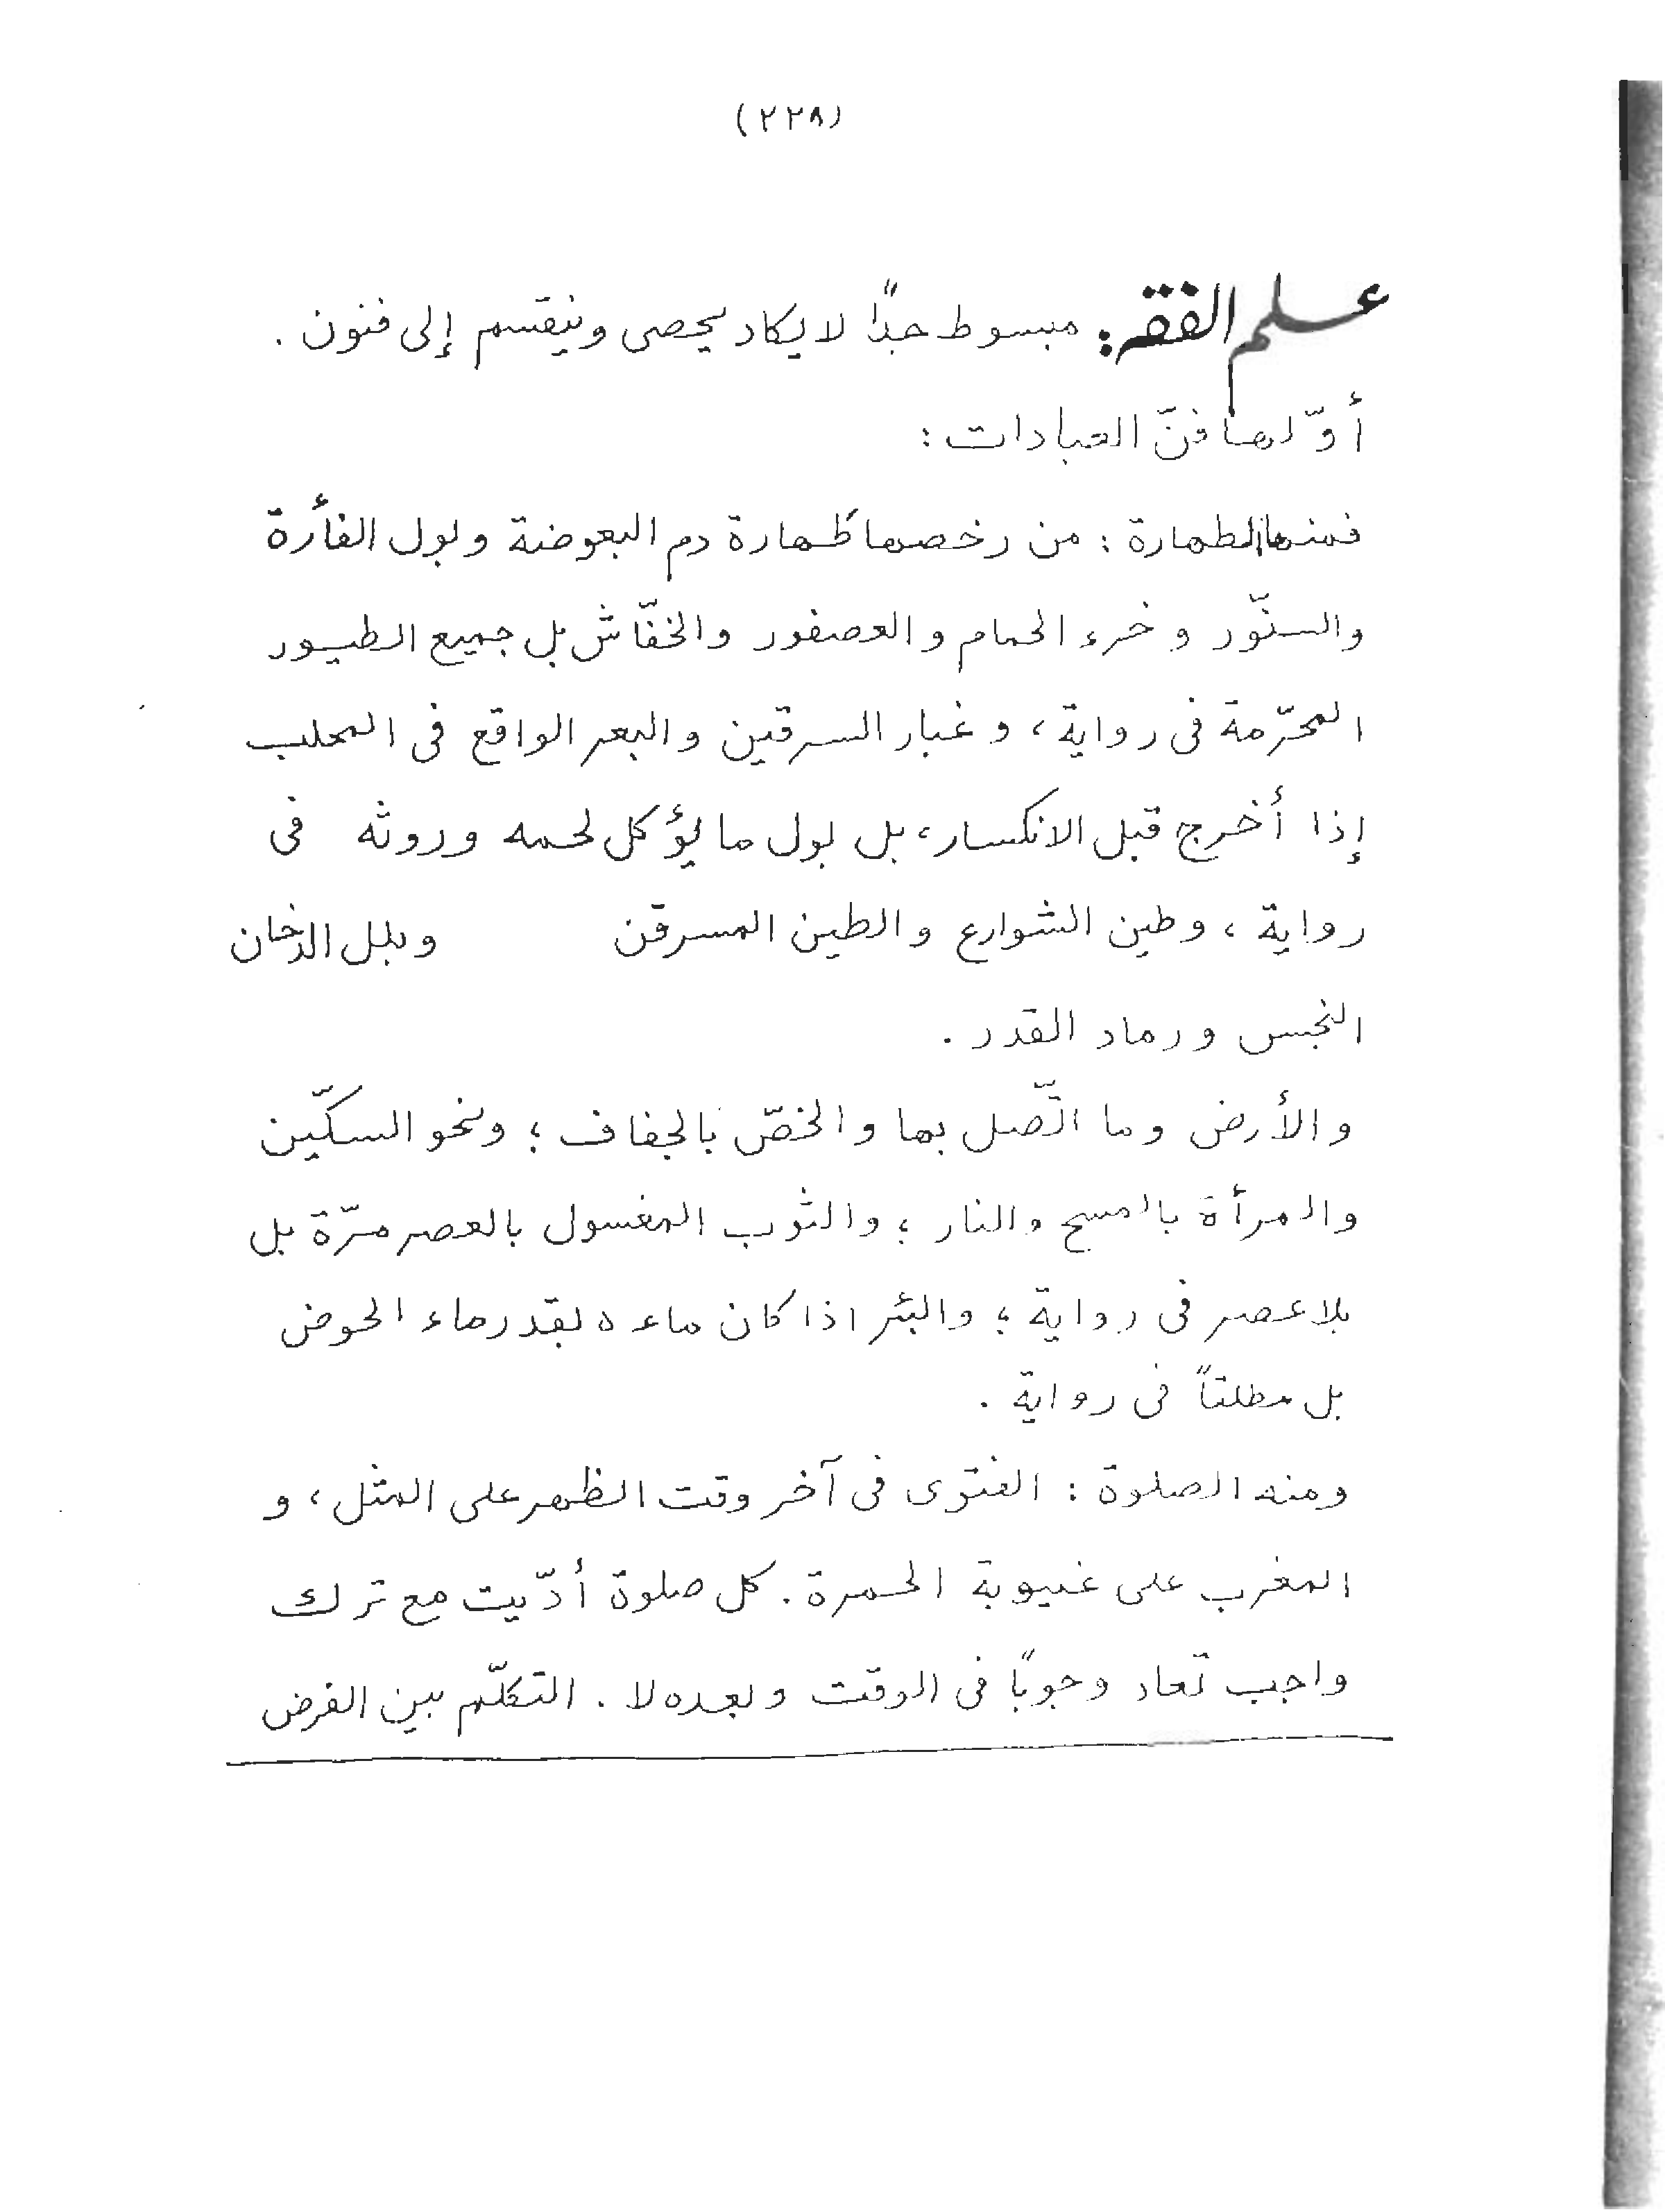 (٢٢٨)
علم الفقه: مبسوط جدًا لا يكاد يحصى وينقسم إلى فنون .
أوّلها فنّ العبادات :
فمنها الطهارة : من رخصها كطهارة دم البعوضة وبول الفأرة
والسنّور و خرء الحمام و العصفور والخفّاش بل جميع الطيور
المحرّمة فى رواية ، و غبار السرقين و البعر الواقع فى المحلب
إذا أخرج قبل الانكسار ، بل بول ما يؤكل لحمه وروثه فى
رواية ، وطين الشوارع والطين المسرقن وبلل الدخان
النجس ورماد القذر .
والأرض وما اتّصل بها والخصّ بالجفاف ؛ ونحو السكّين
والمرأة بالمسح والنار ؛ والثوب المغسول بالعصر مرّة بل
بلا عصر فى رواية ؛ والبئر اذا كان ماءه بقدر ماء الحوض
بل مطلقاً فى رواية .
ومنه الصلوة : الفتوى فى آخر وقت الظهر على المثل ، و
المغرب على غيبوبة الحمرة . كل صلوة أدّيت مع ترك
واجب تعاد وجوبًا فى الوقت وبعده لا . التكلّم بين الفرض